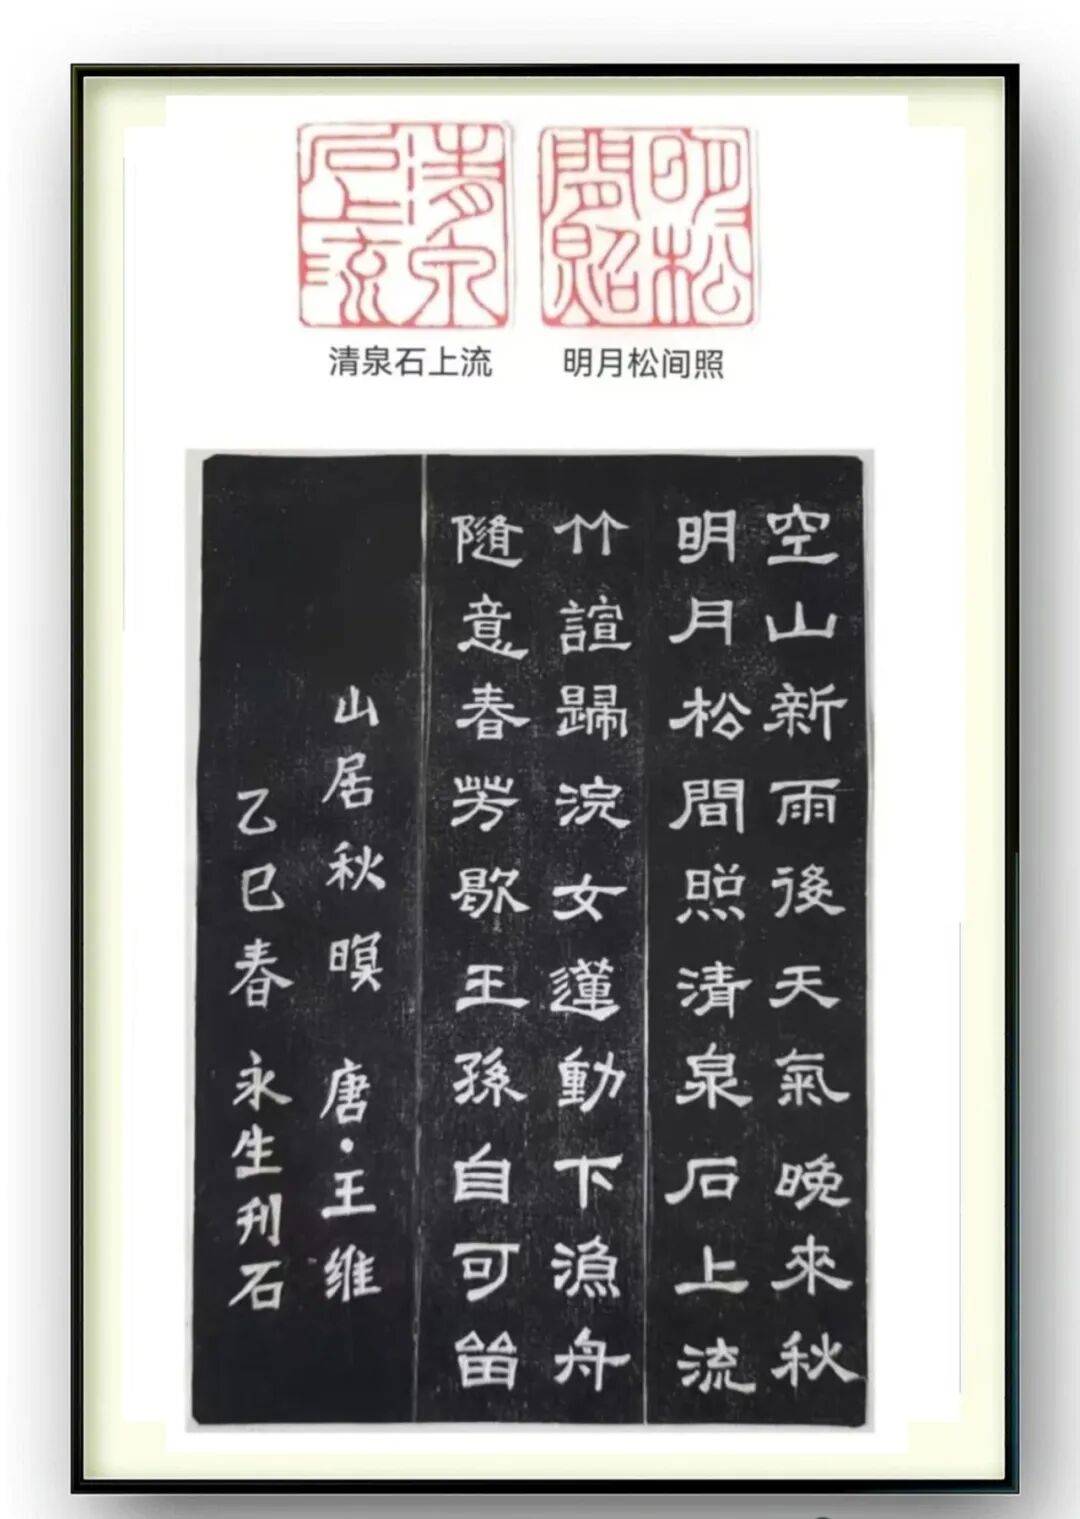 清泉石上流
明月松間照
清泉石上流
明月松间照
空山新雨後天氣晚來秋
明月松間照清泉石上流
竹諠歸浣女蓮動下漁舟
隨意春芳歇王孫自可畱
山居秋暝 唐·王维
乙巳春 永生刊石